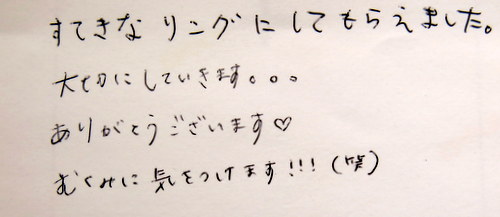 すてきな リングに してもらえました。
大切にしていきます。。。
ありがとうございます♡
むくみに 気をつけます!!!(笑)